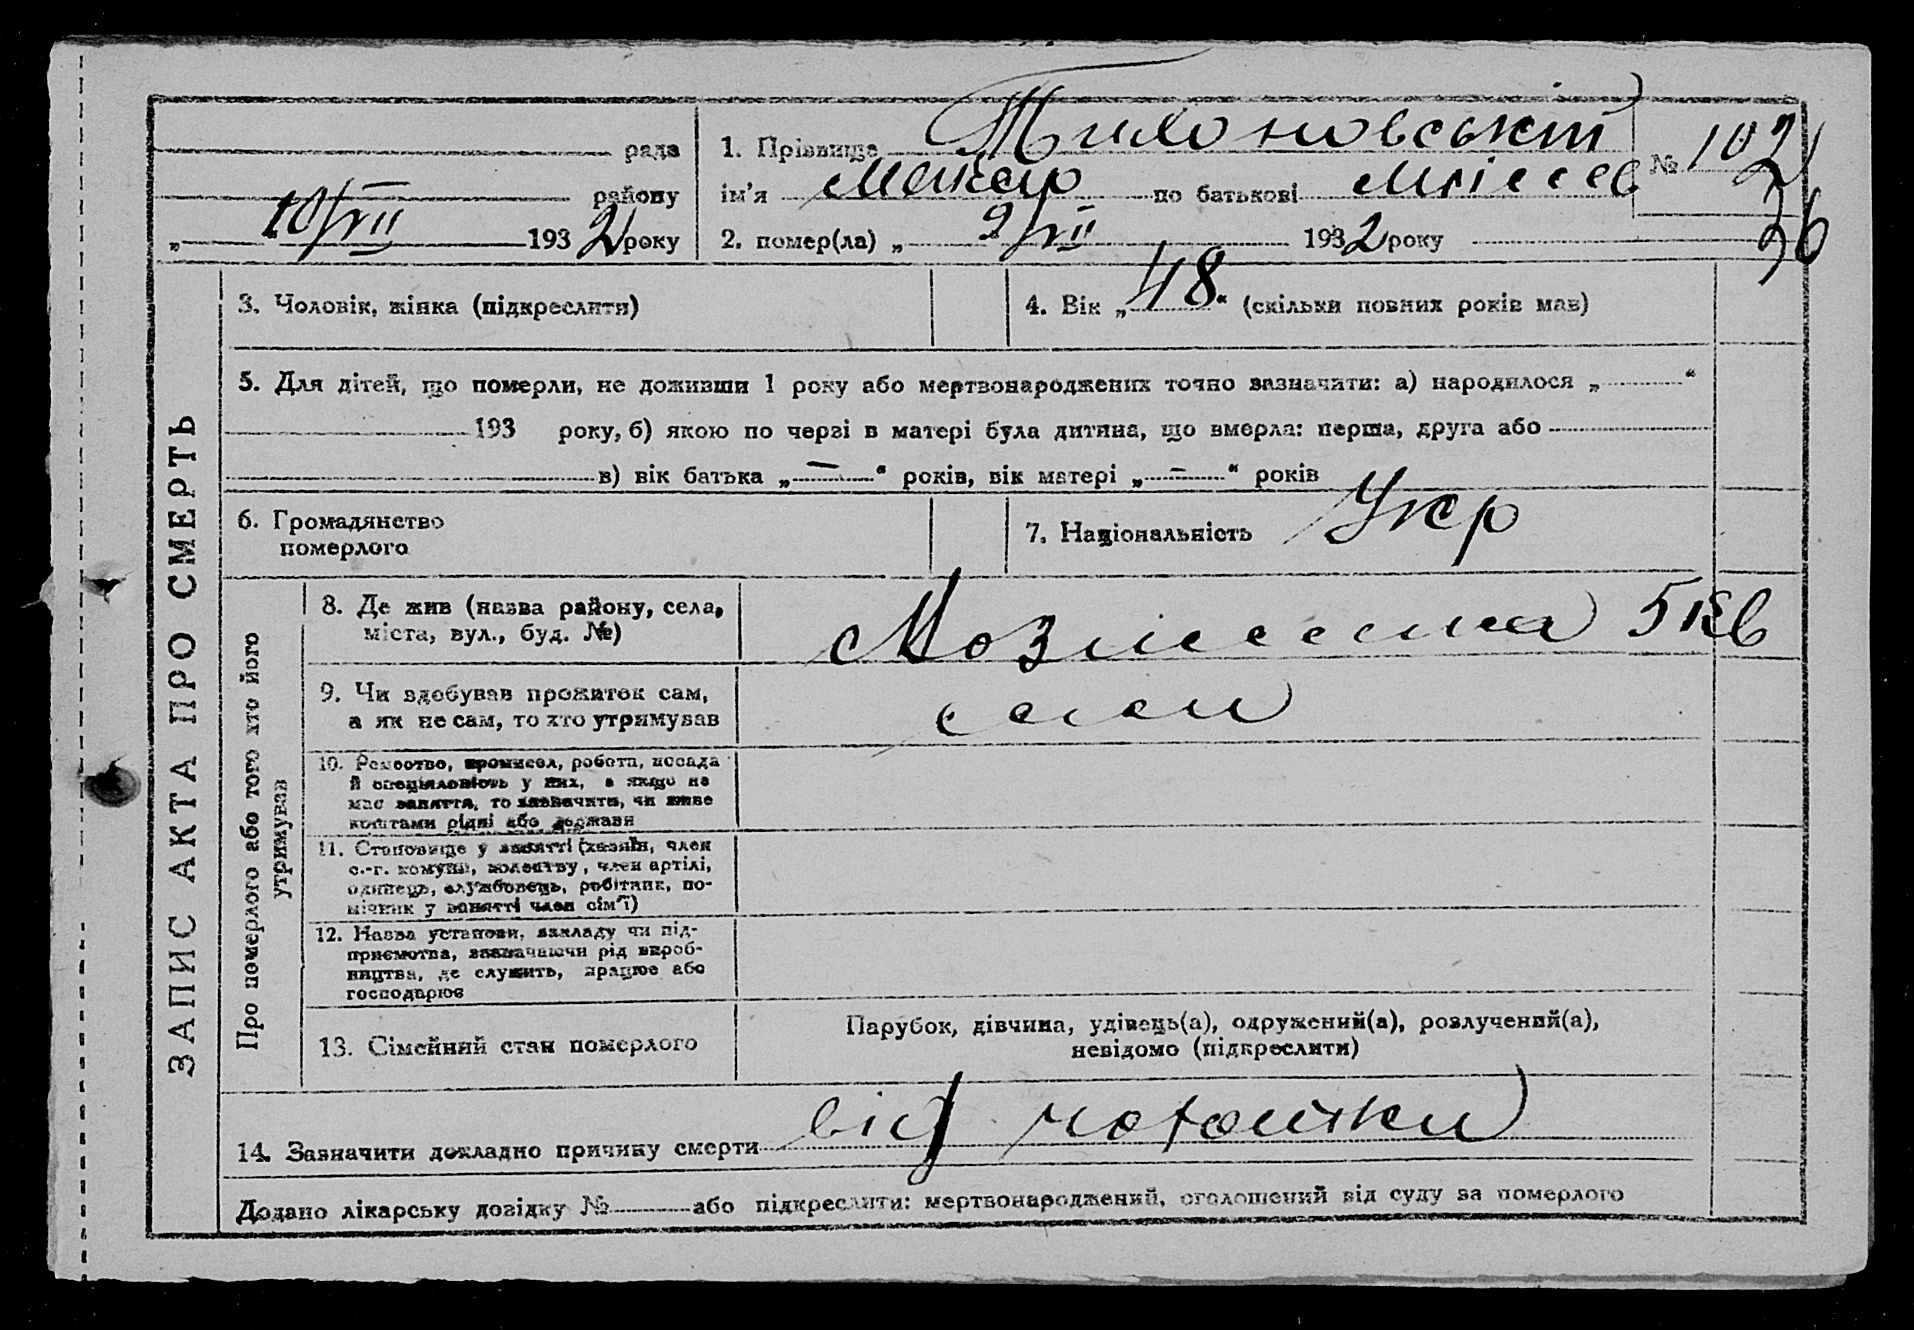 Тихоновський
рада 1. Прізвище № 102
району ім'я Макар по батькові
„ 10/VII 1932 року 2. помер(ла) „ 9/VII 1932 року 36
3. Чоловік, жінка (підкреслити) 4. Вік „48“ (скільки повних років мав)
5. Для дітей, що померли, не доживши 1 року або мертвонароджених точно зазначити: а) народилося „ “
193 року, б) якою по черзі в матері була дитина, що вмерла: перша, друга або
в) вік батька „—“ років, вік матері „—“ років
6. Громадянство померлого
7. Національність Укр
ЗАПИС АКТА ПРО СМЕРТЬ
Про померлого або того хто його утримував
8. Де жив (назва району, села,
міста, вул., буд. №)
5 кв
9. Чи здобував прожиток сам,
а як не сам, то хто утримував
сам
10. Ремество, промисел, робота, посада
й спеціяльність у них, а якщо не
має заняття, то зазначити, чи живе
коштами рідні або держави
11. Становище у занятті (хазяїн, член
с.-г. комуни, колективу, член артілі,
одинець, службовець, робітник, по-
мічник у занятті член сім'ї)
12. Назва установи, закладу чи під-
приємства, зазначаючи рід вироб-
ництва, де служить, працює або
господарює
13. Сімейний стан померлого
Парубок, дівчина, удівець(а), одружений(а), розлучений(а),
невідомо (підкреслити)
14. Зазначити докладно причину смерти від
Додано лікарську довідку № або підкреслити: мертвонароджений, оголошений від суду за померлого